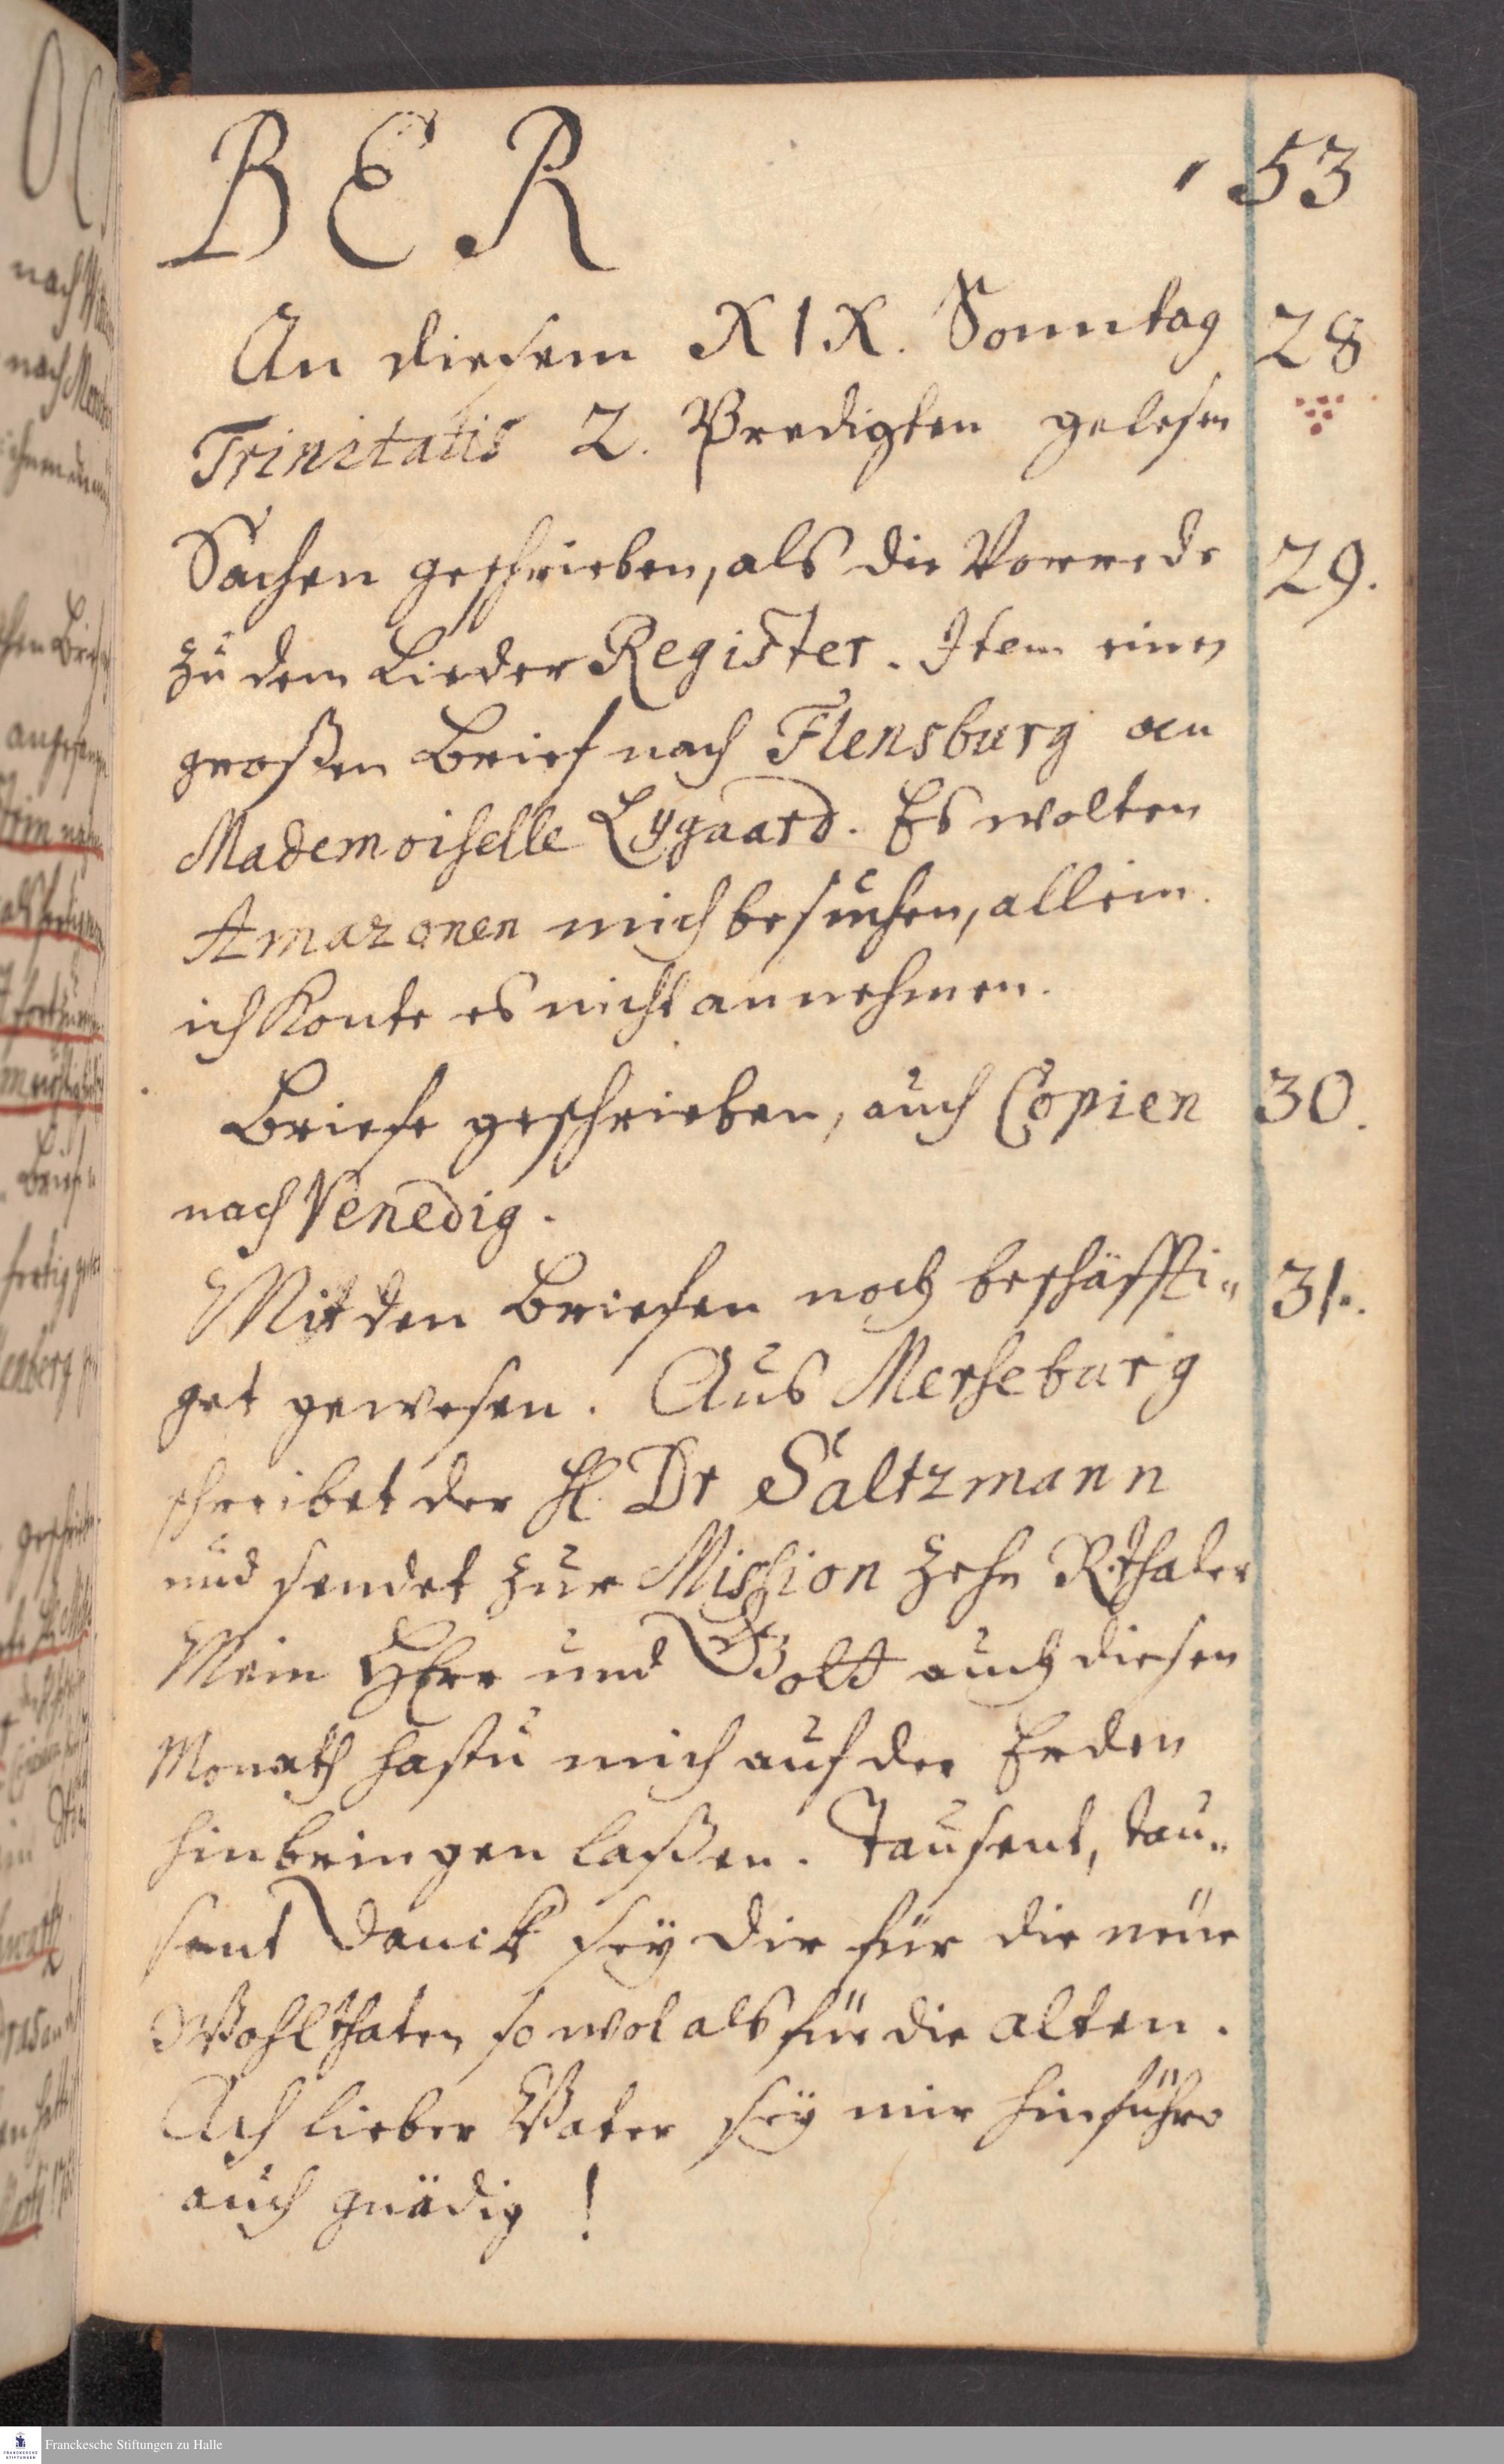 BER 153
An diesem XIX. Sonntag 28
Trinitatis 2. Predigten gelesen
Sachen geschrieben, als die Vorrede 29.
zu dem Lieder Register. Item einen
großen Brief nach Flensburg an
Mademoiselle Lygaard. Es wolten
Amazonen mich besuchen, allein
ich konte es nicht annehmen.
Briefe geschrieben, auch Copien 30.
nach Venedig.
Mit den Briefen noch beschäffti- 31.
get gewesen. Aus Merseburg
schreibet der H. Dr Saltzmann
und sendet zur Mission zehn Rthaler
Mein HErr und Gott auch diesen
Monath hastu mich auf der Erden
hinbringen laßen. Tausent, tau-
sent Danck sey dir für die neue
Wohlthaten so wol als für die alten.
Ach lieber Vater sey mir hinführo
auch gnädig!
Franckesche Stiftungen zu Halle